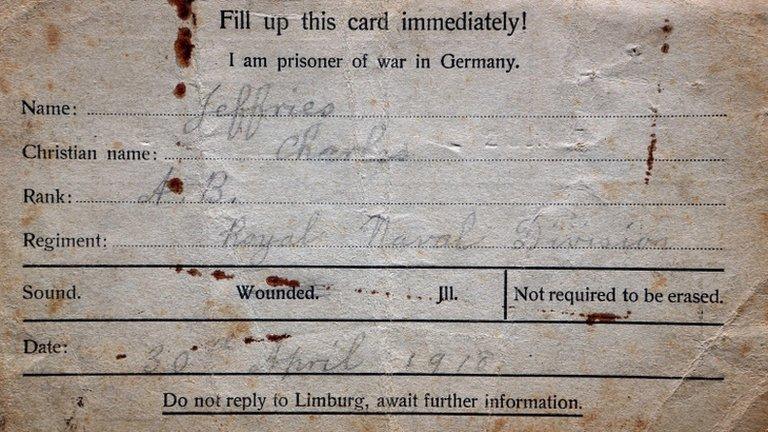 Fill up this card immediately!
I am prisoner of war in Germany.
Name: Jeffries
Christian name: Charles
Rank: A.B.
Regiment: Royal Naval Division
Sound. Wounded. Jll. Not required to be erased.
Date: 30th April 1918
Do not reply to Limburg, await further information.